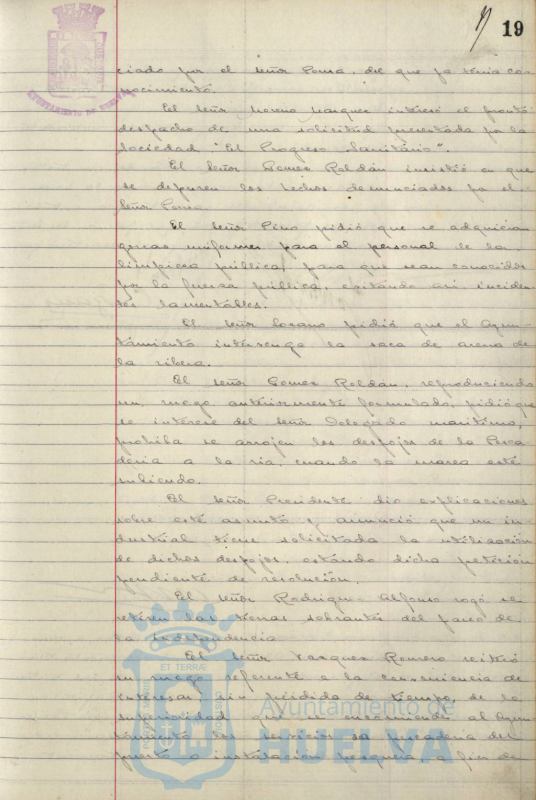 19
ciado por el señor Poma, del que ya tenia co-
nocimiento.
El señor Moreno Marquez interesó el pronto
despacho de una solicitud presentada por la
Sociedad "El Progreso Sanitario".
El señor Gomez Roldán insistió en que
se depuren los hechos denunciados por el
señor
El señor Pino pidió que se adquieran
gorras uniformes para el personal de la
limpieza pública, para que sean conocidos
por la fuerza pública, evitando asi inciden-
tes lamentables.
El señor Lozano pidió que el Ayun-
tamiento intervenga la saca de arena de
la ribera.
El señor Gomez Roldán, reproduciendo
un ruego anteriormente formulado, pidió que
se interese del señor Delegado maritimo,
prohiba se arrojen los despojos de la Pesca
deria a la ria, cuando la marea esté
subiendo.
El señor Presidente dio explicaciones
sobre este asunto y anunció que un in-
dustrial tiene solicitada la utilización
de dichos despojos, estando dicha petición
pendiente de resolución.
El señor Rodriguez Alfonso rogó se
retiren las tierras sobrantes del paseo de
la Independencia
El señor Vazquez Romero reiteró
un ruego referente a la conveniencia de
interesar, sin pérdida de tiempo, de la
superioridad que se encomiende al Ayun-
tamiento los servicios de pescaderia del
puerto o instalación pesquera, a fin de
AYUNTAMIENTO DE HUELVA
ET TERRÆ
Ayuntamiento de
HUELVA